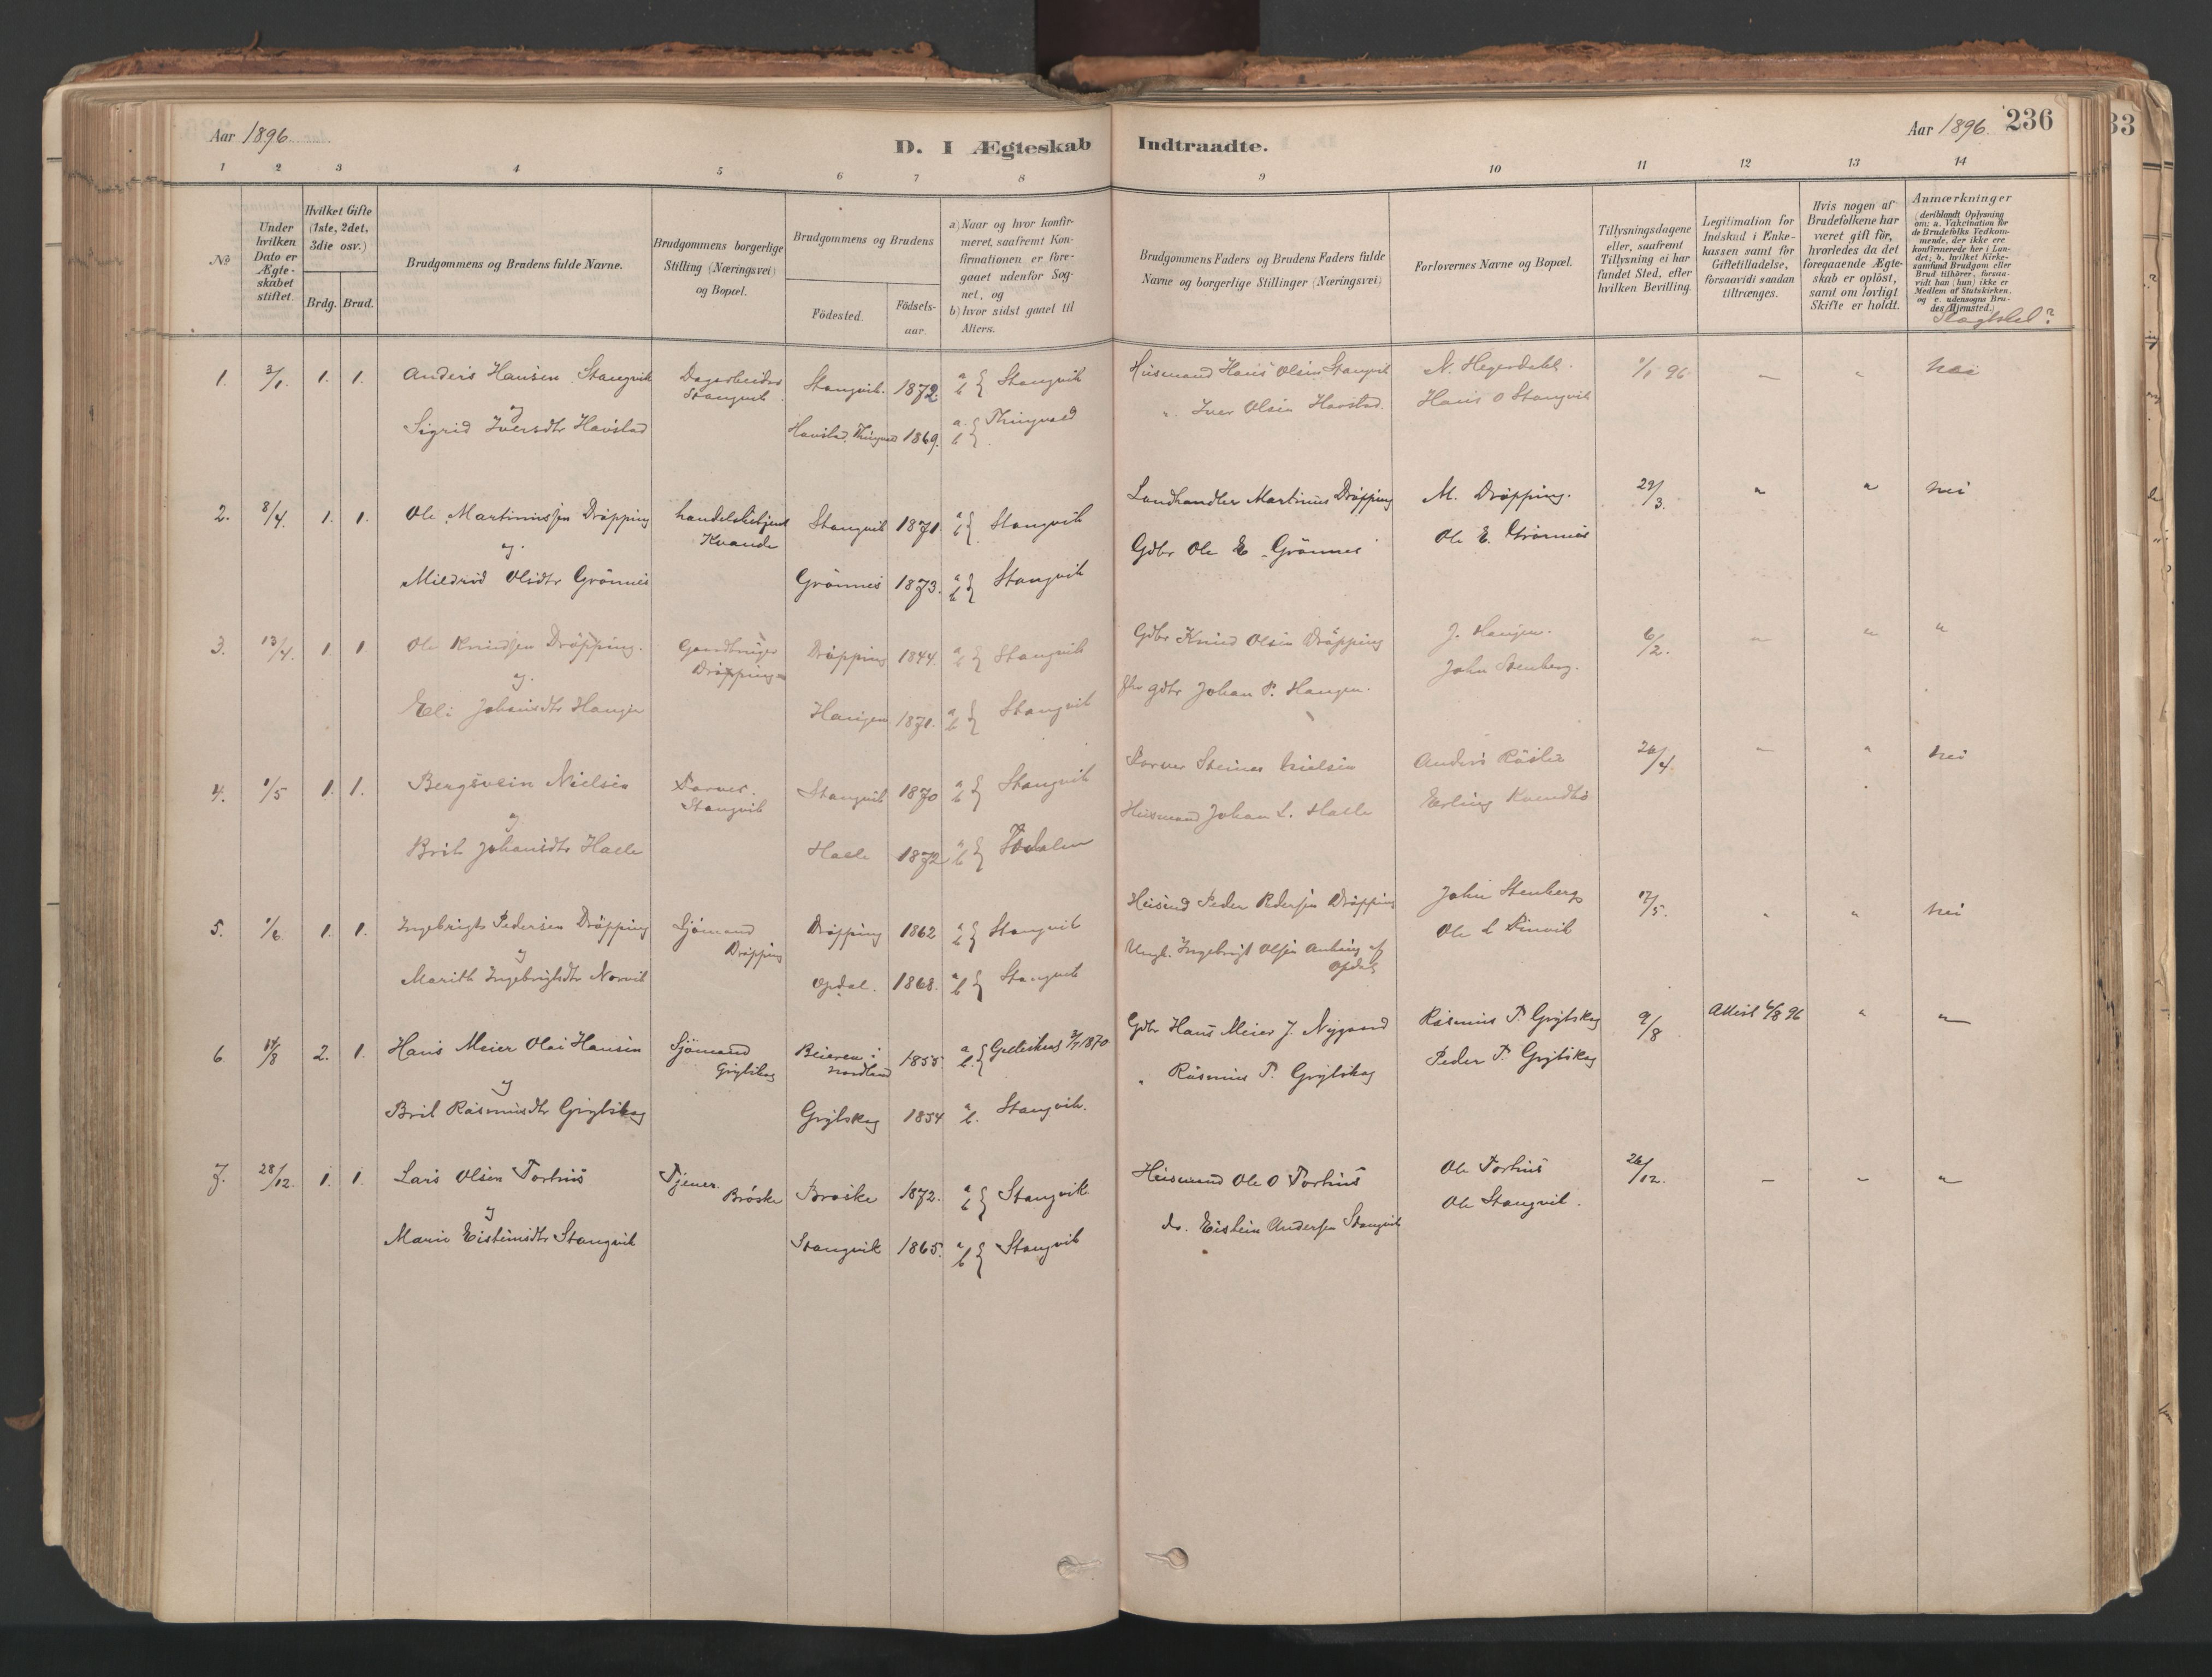 Aar 1896
D. I Ægteskab Indtraadte.
Aar 1896. 236
33
1 2 3 4 5 6 7 8 9 10 11 12 13 14
No
Under hvilken Dato er Ægte-skabet stiftet.
Hvilket Gifte (1ste, 2det, 3die osv.)
Brdg. Brud.
Brudgommens og Brudens fulde Navne.
Brudgommens borgerlige Stilling (Næringsvei) og Bopæl.
Brudgommens og Brudens
Födested. Födsels-aar.
a) Naar og hvor konfir-meret, saafremt Kon-firmationen er fore-gaaet udenfor Sog-net, og
b) hvor sidst gaaet til Alters.
Brudgommens Faders og Brudens Faders fulde Navne og borgerlige Stillinger (Næringsvei)
Forlovernes Navne og Bopæl.
Tillysningsdagene eller, saafremt Tillysning ei har fundet Sted, efter hvilken Bevilling.
Legitimation for Indskud i Enke-kassen samt for Giftetilladelse, forsaavidt saadan tiltrænges.
Hvis nogen af Brudefolkene har været gift för, hvorledes da det foregaaende Ægte-skab er oplöst, samt om lovligt Skifte er holdt.
Anmærkninger (deriblandt Oplysning om: a. Vakcination for de Brudefolks Vedkom-mende, der ikke ere konfirmerede her i Lan-det; b. hvilket Kirke-samfund Brudgom eller Brud tilhörer, forsaa-vidt han (hun) ikke er Medlem af Statskirken, og c. udensogns Bru-des Hjemsted.)
Slægtskab?
1. 3/1. 1. 1. Anders Hansen Stangvik Dagarbeider Stangvik. 1872. a b } Stangvik Husmand Hans Olsen Stangvik N. Hegerdahl. 1/1 96 — " nei
og Stangvik
Sigrid Iversdtr Havstad Havstad. Thingvold 1869. a. b } Thingvold " Iver Olsen Havstad. Hans O Stangvik
2. 8/4. 1. 1. Ole Martinussen Dröpping handelsbetjent Stangvik 1871. a b } Stangvik Landhandler Martinus Dröpping M. Dröpping. 29/3. " " nei
og. Kvande
Mildrid Olsdtr Grönnes Grönnes 1873. a b } Stangvik Gdbr Ole E. Grönnes Ole E. Grönnes
3. 13/4. 1. 1. Ole Knudsen Dröpping. Gaardbruger Dröpping 1844. a b } Stangvik Gdbr Knud Olsen Dröpping J. Haugen. 6/2. " " "
og. Dröpping
Eli Johansdtr Haugen Haugen 1871. a b } Stangvik fhv gdbr Johan P. Haugen. John Stenberg.
4. 1/5 1. 1. Bergsvein Nielsen Farver. Stangvik 1870 a b } Stangvik Farver Steiner Nielsen Anders 26/4. — " nei
og Stangvik
Brit Johansdtr Halle Halle 1872 a b } Todalen Husmand Johan L. Halle Erling Kvendbö
5. 1/6 1. 1. Ingebrigt Pedersen Dröpping Sjömand Dröpping 1862 a b } Stangvik Husmd Peder Pedersen Dröpping John Stenberg 17/5. " " nei
og Dröpping
Marith Ingebrigtsdtr Norvik Opdal. 1868. a b } Stangvik Ungk. Ingebrigt Olsen af Opdal Ole L
6 14/8 2. 1. Hans Meier Olai Hansen Sjömand Beieren i Nordland 1855. a b. } Gilleskaal 3/7 1870 Gdbr Hans Meier J. Nygaard Rasmus P. Grytskog 9/8 Attest 6/8 96 " "
og Grytskog
Brit Rasmusdtr Grytskog Grytskog 1854 a b. Stangvik. " Rasmus P. Grytskog Peder P. Grytskog
7. 28/12. 1. 1. Lars Olsen Torhus Tjener. Bröske 1872. a b } Stangvik Husmand Ole O Torhus Ole Torhus 26/12. — " "
og Bröske
Marie Eisteinsdtr Stangvik Stangvik 1865. a b } Stangvik do. Eistein Andersen Stangvik Ole Stangvik.